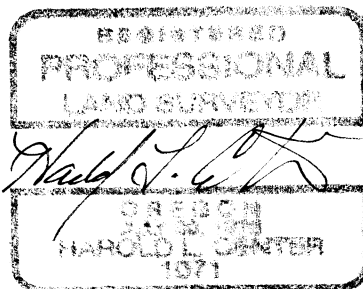 REGISTERED
PROFESSIONAL
LAND SURVEYOR
Harold L.
OREGON
HAROLD L.
1971